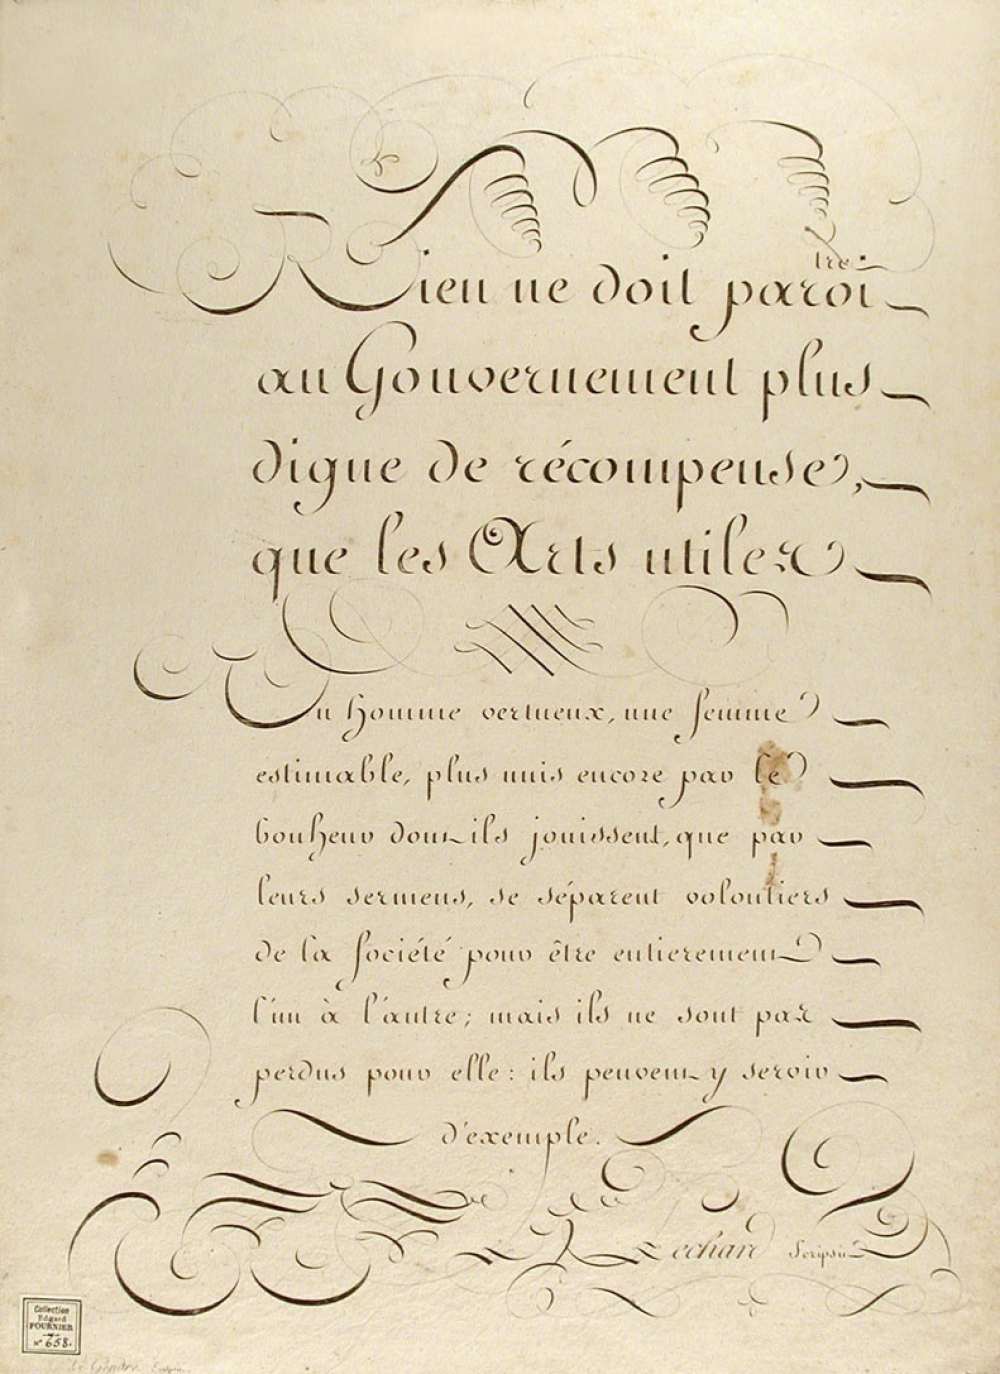 Rien ne doit paroitre
au Gouvernement plus
digne de récompense,
que les Arts utiles
Un homme vertueux, une femme
estimable, plus unis encore par le
bonheur dont ils jouissent, que par
leurs sermens, se séparent volontiers
de la société pour être entierement
l'un à l'autre; mais ils ne sont pas
perdus pour elle: ils peuvent y servir
d'exemple.
Lechard Scripsit
Collection
Edgard
FOURNIER
N° 658.